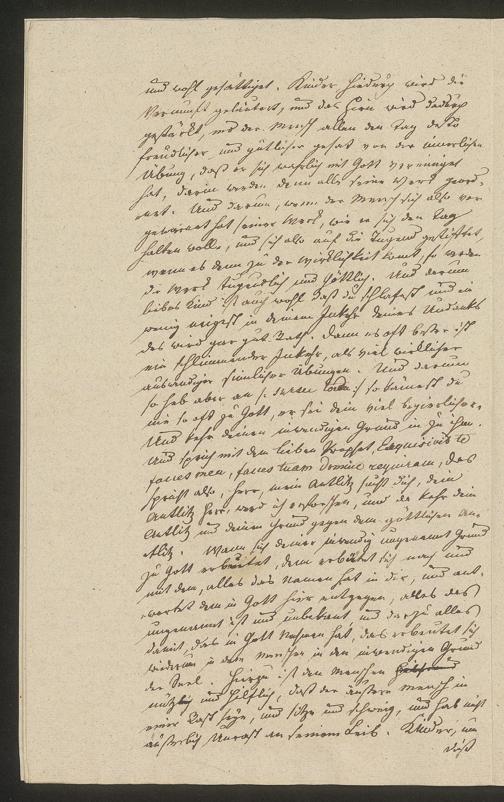 und wohl gesättiget. Kinder hiedurch wird die
Vernunft geläutert, und das Hirn wird dadurch
gestärkt, und der Mensch allen den Tag desto
freudlicher und göttlicher gehet von der innerlichen
Übung, daß er sich wahrlich mit Gott vereiniget
hat, darin werden dann alle seine Werk geord-
net. Und darum, wenn der Mensch sich also vor
gewarnet hat seiner Werk, wie er sich den Tag
halten wolle, und sich also auf die Tugend gestiftet,
wenn es denn zu der Wirklichkeit komt, so werden
die Werk tugendlich und göttlich. Und darum
liebes Kind ist auch wohl daß du schlafest und ein
wenig neigest in deinem Inkehr deines Undanks
des wird gar gut Rath. Dann es oft besser ist
ein schlummernder Inkehr, als viel wirklicher
auswendiger sinnlicher Übungen. Und darum
so heb aber an
wie so oft zu Gott, er sei dein viel begierlicher.
Und kehr deinen inwendigen Grund in zu ihm.
Und sprich mit dem lieben Prophet, Exquisivit te
facies mea, faciem tuam Domine requiram, das
spricht also, Herr, mein Antlitz sucht dich, dein
Antlitz Herr, werd ich erforschen, und da kehr dein
Antlitz und deinen Grund gegen dem göttlichen An-
tlitz. Wann sich deiner inwendig ungenannt Grund
zu Gott erbeutet, dem erbeutet sich nach und
mit dem, alles das Namen hat in dir, und ant-
wortet dem in Gott hier entgegen, alles das
ungenannt ist und unbekant und dazu alles
damit, das in Gott Nahmen hat, das erbeutet sich
wiederum in dem Menschen in den inwendigen Grund
der Seel. Hierzu ist dem Menschen
nutzlich und hilflich, daß der äußere Mensch in
einer Rast seye, und sitze und schweig, und hab nicht
äußerlich Unrast an seinem Leib. Kinder, nun